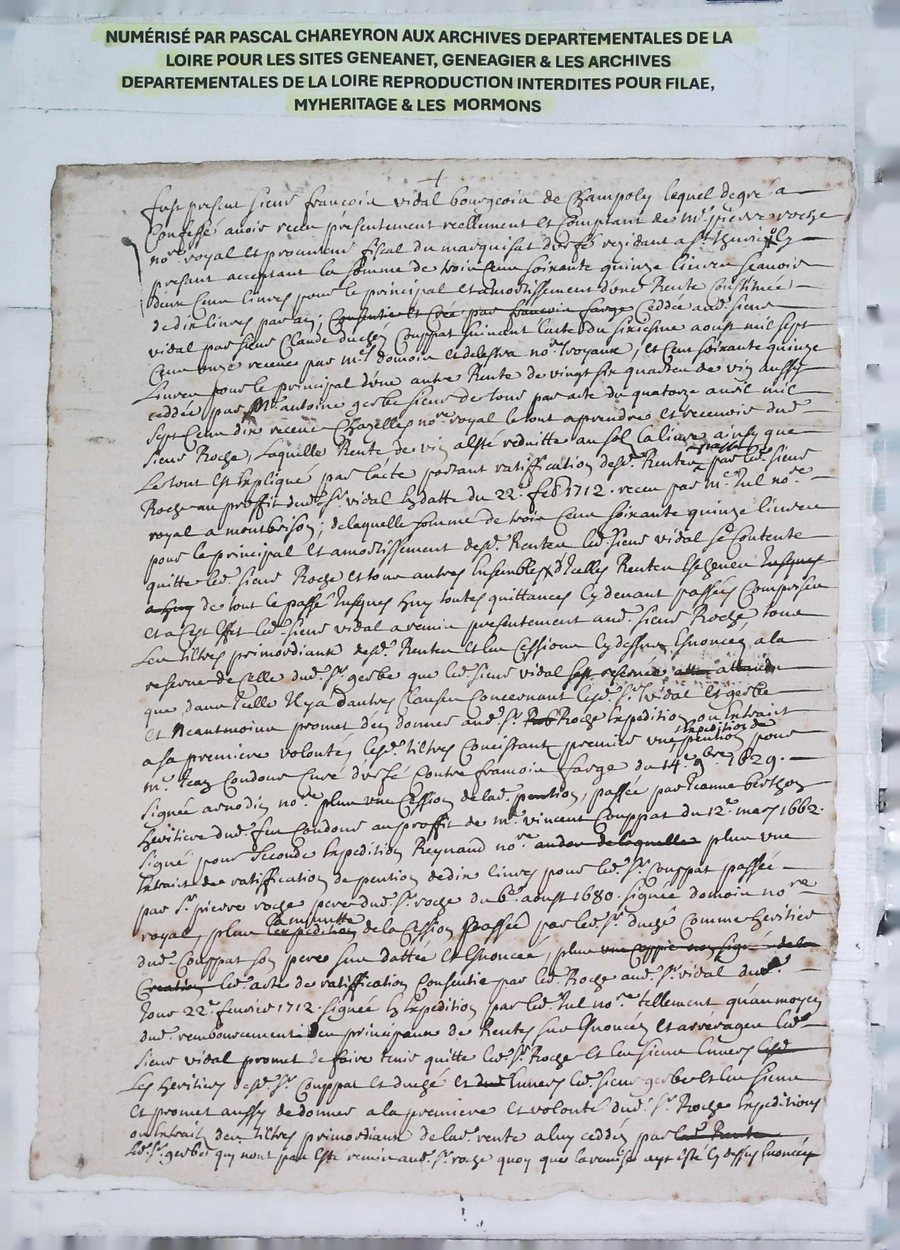 NUMÉRISÉ PAR PASCAL CHAREYRON AUX ARCHIVES DEPARTEMENTALES DE LA
LOIRE POUR LES SITES GENEANET, GENEAGIER & LES ARCHIVES
DEPARTEMENTALES DE LA LOIRE REPRODUCTION INTERDITES POUR FILAE,
MYHERITAGE & LES MORMONS
fust present sieur francois vidal bourgeois de Champoly lequel de gré a
Confessé avoir receu presentement reellement et Comptant de Mr pierre roche
nore royal et procureur fiscal du marquisat durfé residant a St
present acceptant la somme de trois Cens soixante quinze livres scavoir
deux Cens livres pour le principal et amortissement d'une Rente constituée
de dix livres par an, Consentie et Créé par francois farge Ceddée aud. sieur
vidal par sieur Claude duché Couppat suivant l'acte du sixiesme aoust mil sept
Cens onze receue par mes domoin et delestra nores royaux, et Cens soixante quinze
Livres pour le principal d'une autre Rente de vingt six quartes de vin aussy
ceddée par Mr antoine gerbe sieur de par acte du quatorze avril mil
sept Cens dix receue Chazelles nore royal le tout a prendre et recevoir dud.
sieur Roche, Laquelle Rente de vin a esté reduitte au sol la livre ainsy que
Le tout est Expliqué par l'acte portant ratiffication desd. Rentes passé par led. sieur
Roche au proffit dud. Sr. vidal En datte du 22e feb 1712. receu par me nore
royal a montbrison, de laquelle somme de trois Cens soixante quinze livres
pour le principal Et amortissement desd. Rentes led. sieur vidal se Contente
quitte led. sieur Roche et tous autres Ensemble d'Icelles Rentes Escheues Jusques
a huy de tout le passé Jusques huy toutes quittances Cy devant passées Comprises
et a Cest Effet led. sieur vidal a remis presentement aud. sieur Roche tous
Les tiltres primordiaux desd. Rentes et les Cessions Cy dessus Enoncés a la
reserve de Celle dud. Sr. gerbe que led. sieur vidal reservée
que dans Icelle Il y a d'autres Clauses Concernant lesd. Srs vidal Et gerbe
et Neantmoins promet d'en donner aud. Sr. Roche Expedition ou Extrait
a sa premiere volonté, lesd. tiltres Concistant premier une Expedition de pention pour
mr. Jean Condour Curé durfé Contre francois farge du 14e 9bre 1629.
Signée arnodin nore plus une Cession de lad. pention, passée par Jeanne berthon
heritiere dud. feu Condour au proffit de me. vincent Couppat du 12e mars 1662.
Signé pour seconde Expedition Reynaud nore plus une
Extrait de ratiffication de pention de dix livres pour led. Sr. Couppat passée
par Sr. pierre roche pere dud. Sr. roche du 6e aoust 1680. signée domoin nore
royal, plus la minutte l'expedition de la Cession passée par led. Sr. duché Comme heritier
dud. Couppat son pere sus dattée et Enoncée, plus une Coppie non signé de la
Creation led. acte de ratiffication Consentie par led. Roche aud. Sr. vidal dud.
Jour 22e. fevrier 1712. signée En Expedition par led. nore tellement qu'au moyen
dud. remboursement des principaux de Rentes sus Enoncés et arrérages led.
sieur vidal promet de faire tenir quitte led. Sr. Roche Et les siens Envers
Les heritiers desd. Srs. Couppat et duché et Envers led. sieur gerbe et les siens
Et promet aussy de donner a la premiere Et volonté dud. Sr. Roche Expeditions
ou Extrait des tiltres primordiaux de lad. rente a luy ceddés par
led. Sr. gerbe qui n'ont pas Esté remis aud. Sr. roche quoy que la remise aye Esté Cy dessus Enoncée